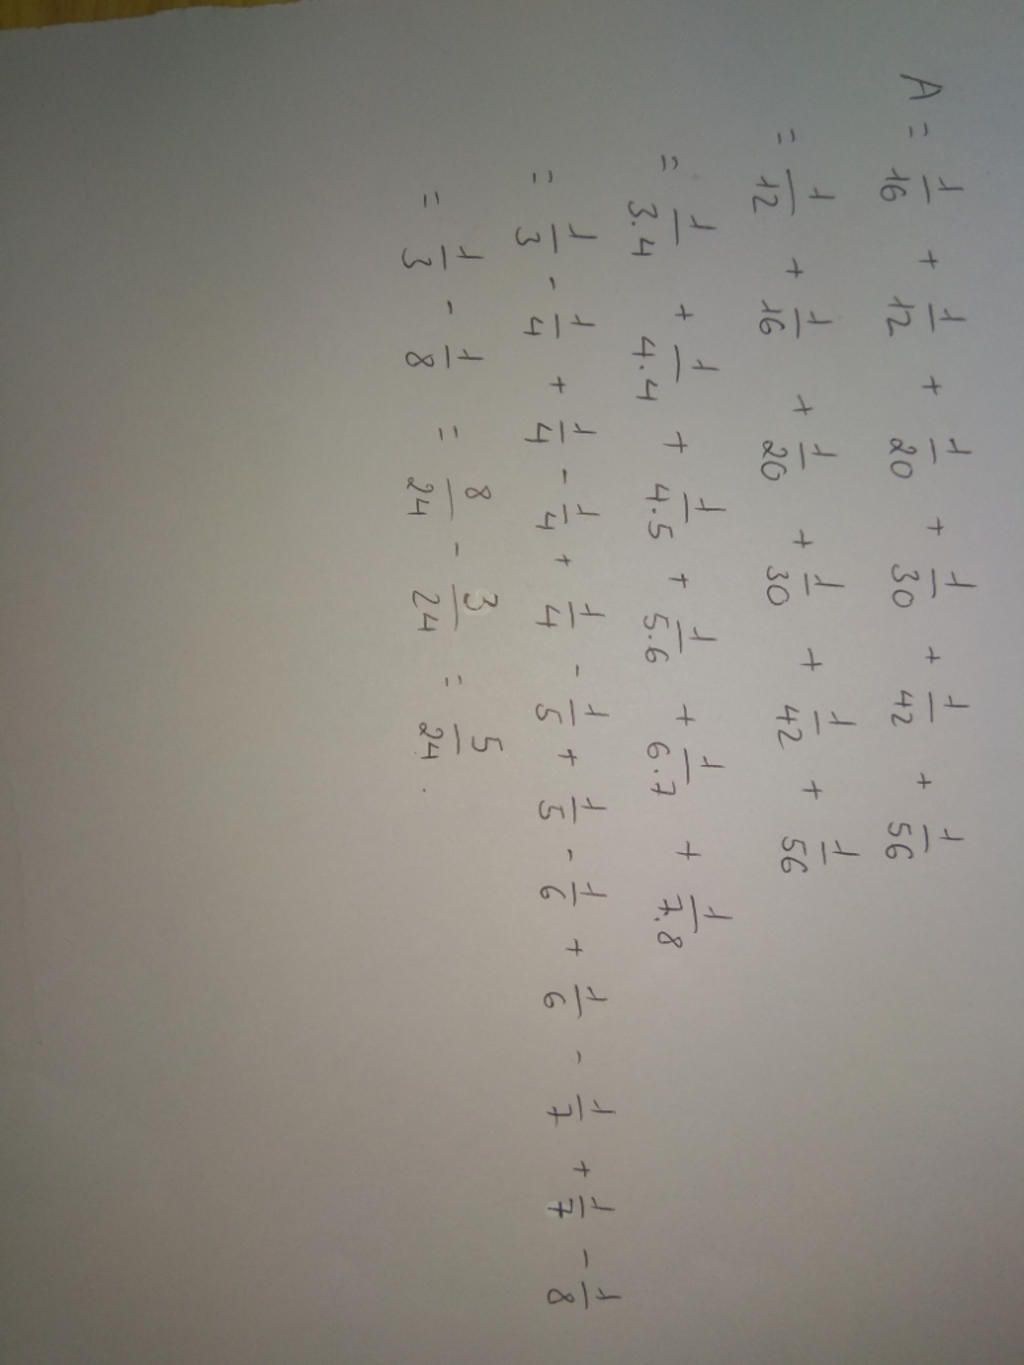 A = 1/16 + 1/12 + 1/20 + 1/30 + 1/42 + 1/56
= 1/12 + 1/16 + 1/20 + 1/30 + 1/42 + 1/56
= 1/3.4 + 1/4.4 + 1/4.5 + 1/5.6 + 1/6.7 + 1/7.8
= 1/3 - 1/4 + 1/4 - 1/4 + 1/4 - 1/5 + 1/5 - 1/6 + 1/6 - 1/7 + 1/7 - 1/8
= 1/3 - 1/8 = 8/24 - 3/24 = 5/24.